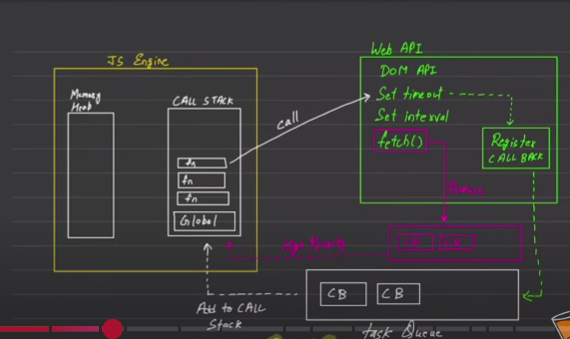 JS Engine
Memory
Heap
CALL STACK
fn
fn
fn
Global
call
Web API
DOM API
Set timeout
Set interval
fetch()
Register
CALL BACK
Promise
High Priority
CB CB
CB CB
Add to CALL
Stack
task Queue